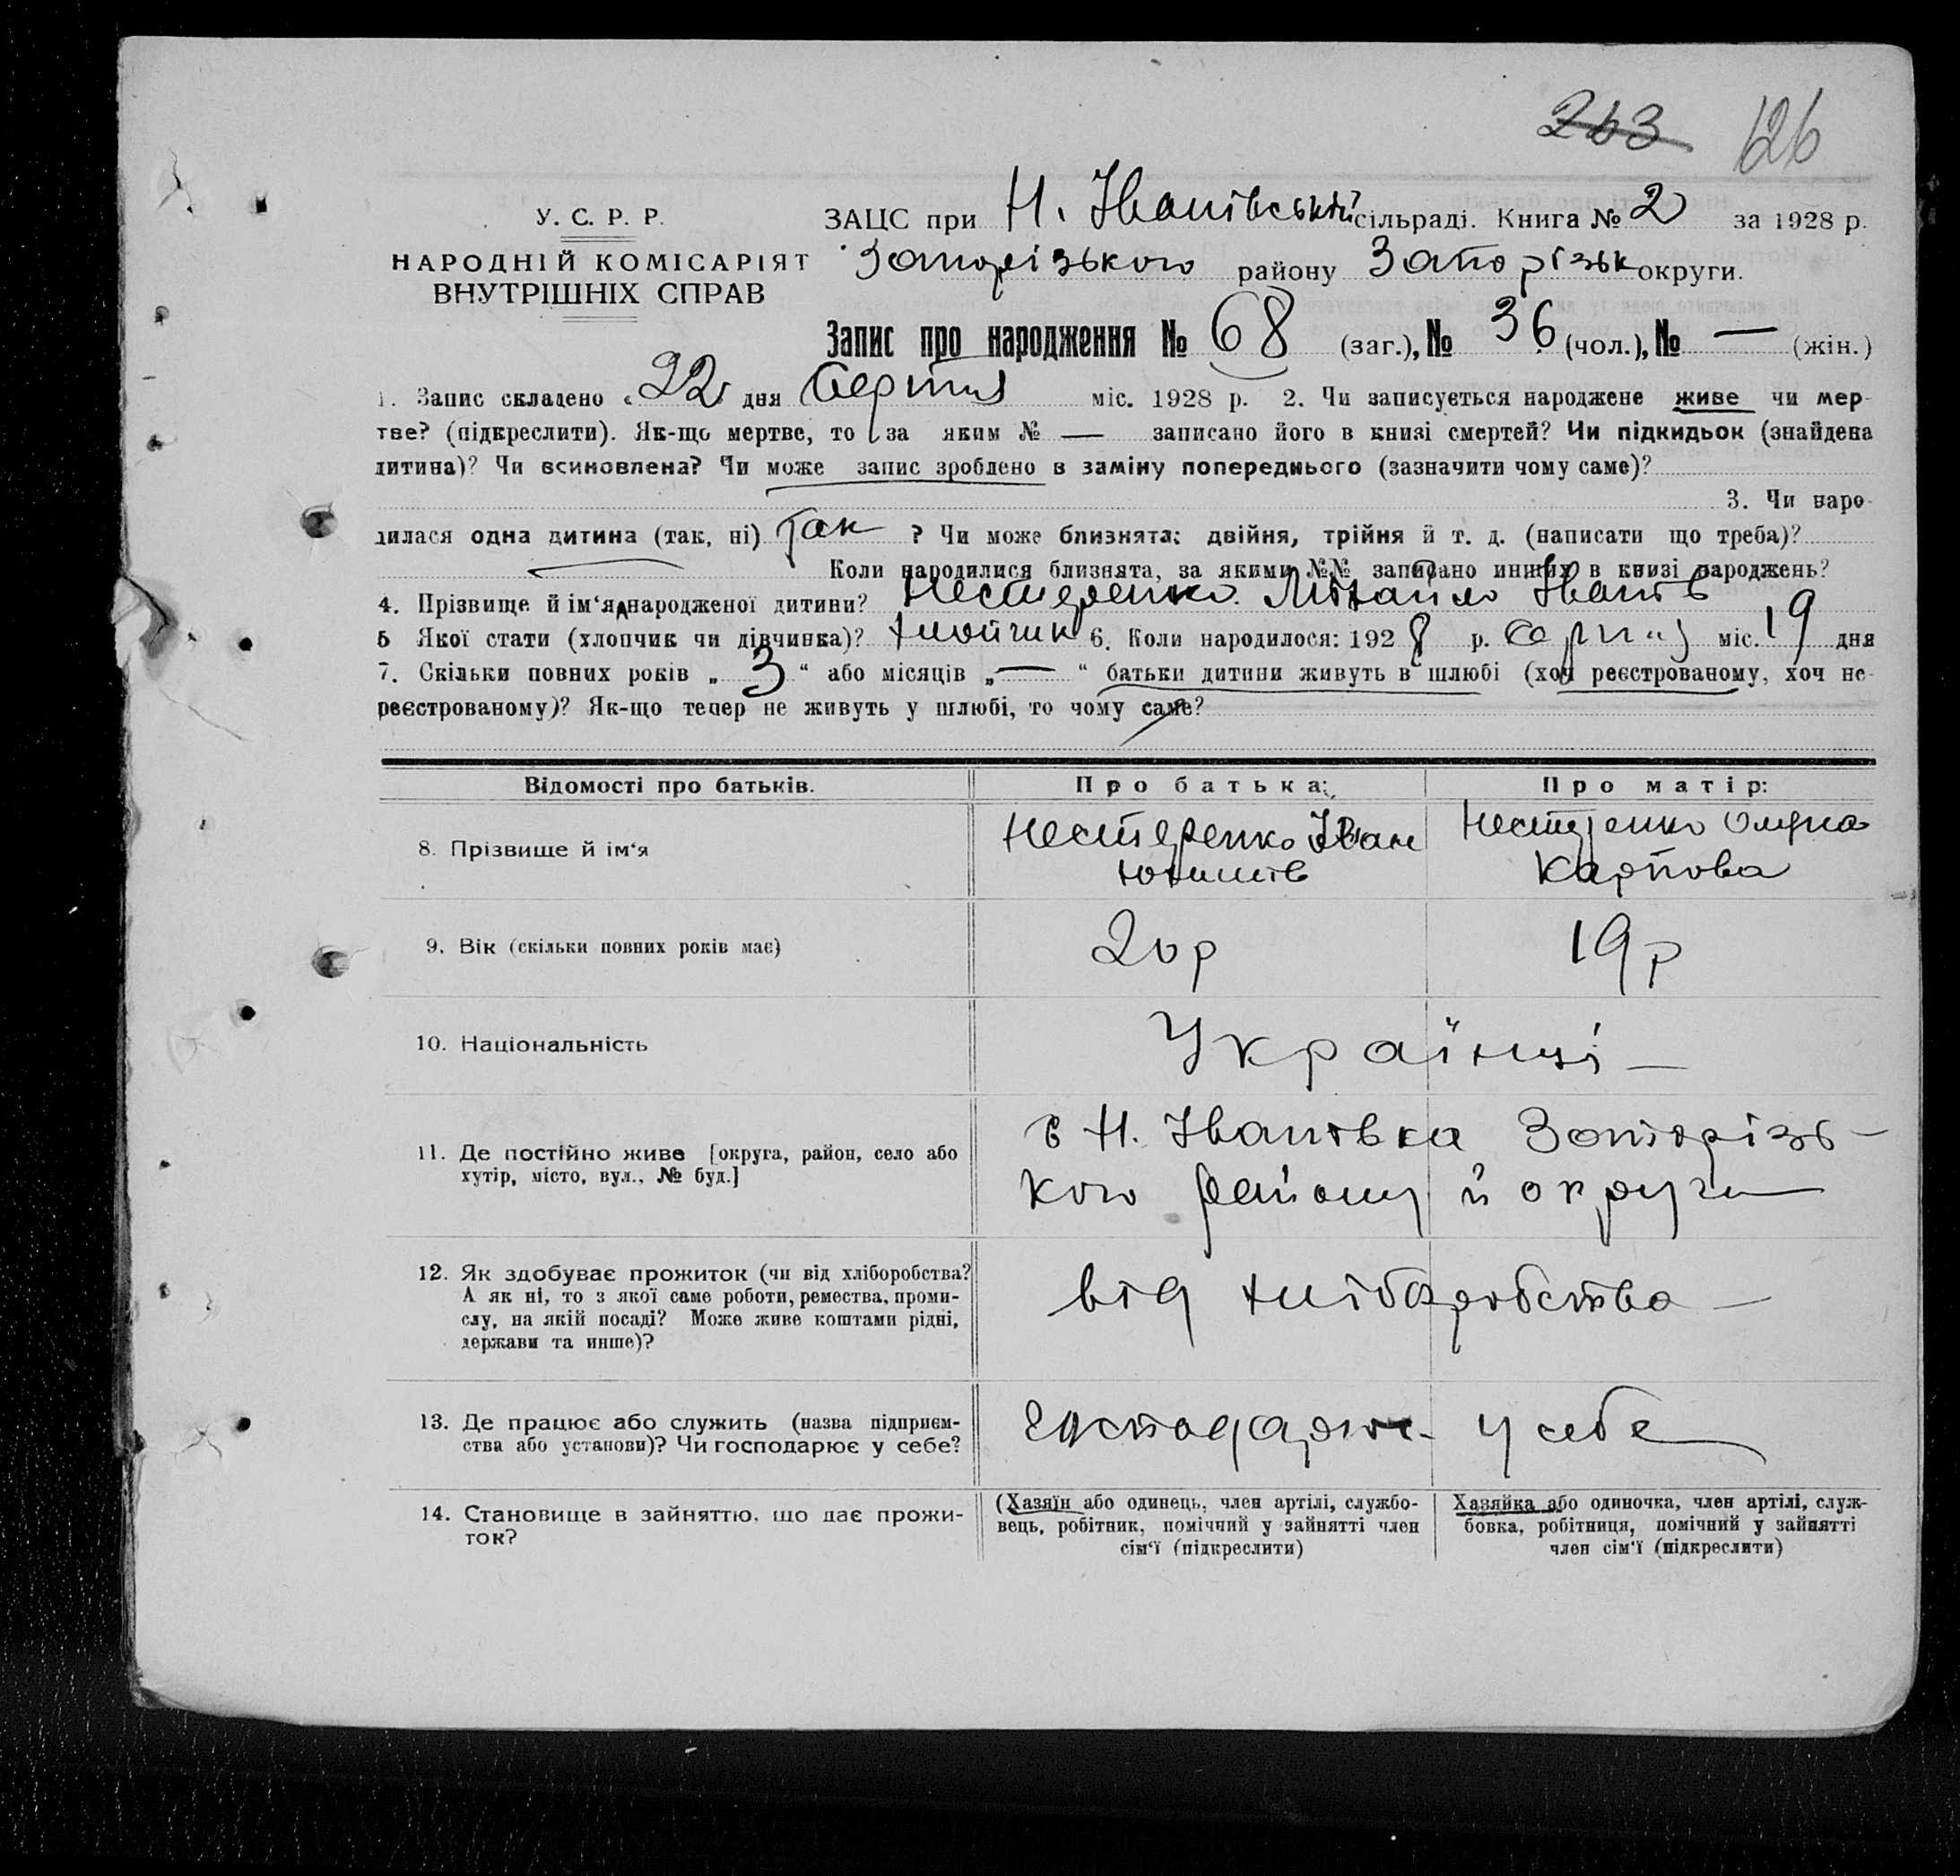 263 126
У. С. Р. Р.
НАРОДНІЙ КОМІСАРІЯТ
ВНУТРІШНІХ СПРАВ
ЗАЦС при Н. Іванівській сільраді. Книга № 2 за 1928 р.
Запорізького району Запорізьк округи.
Запис про народження № 68 (заг.), № 36 (чол.), № — (жін.)
1. Запис складено « 22 » дня Серпня міс. 1928 р. 2. Чи записується народжене живе чи мер-
тве? (підкреслити). Як-що мертве, то за яким № — записано його в книзі смертей? Чи підкидьок (знайдена
дитина)? Чи всиновлена? Чи може запис зроблено в заміну попереднього (зазначити чому саме)?
3. Чи наро-
дилася одна дитина (так, ні) Так ? Чи може близнята: двійня, трійня й т. д. (написати що треба)?
Коли народилися близнята, за якими №№ записано инших в книзі народжень?
4. Прізвище й ім‘я народженої дитини? Нестеренко Михайло Іванів
5 Якої стати (хлопчик чи дівчинка)? хлопчик 6. Коли народилося: 1928 р. Серпня міс. 19 дня
7. Скільки повних років „ 3 “ або місяців „ — “ батьки дитини живуть в шлюбі (хоч реєстрованому, хоч не-
реєстрованому)? Як-що тепер не живуть у шлюбі, то чому саме?
Відомості про батьків. Про батька: Про матір:
8. Прізвище й ім‘я Нестеренко Іван Нестеренко Олена
Карпова
9. Вік (скільки повних років має) 20 р 19 р
10. Національність Українці —
11. Де постійно живе [округа, район, село або
хутір, місто, вул., № буд.]
с Н. Іванівка Запорізь-
кого району й округи
12. Як здобуває прожиток (чи від хліборобства?
А як ні, то з якої саме роботи, ремества, проми-
слу, на якій посаді? Може живе коштами рідні,
держави та инше)?
від хліборобства —
13. Де працює або служить (назва підприєм-
ства або установи)? Чи господарює у себе?
господарює у себе
14. Становище в зайняттю, що дає прожи-
ток?
(Хазяїн або одинець, член артілі, службо-
вець, робітник, помічний у зайнятті член
сім‘ї (підкреслити)
Хазяйка або одиночка, член артілі, служ-
бовка, робітниця, помічний у зайнятті
член сім‘ї (підкреслити)